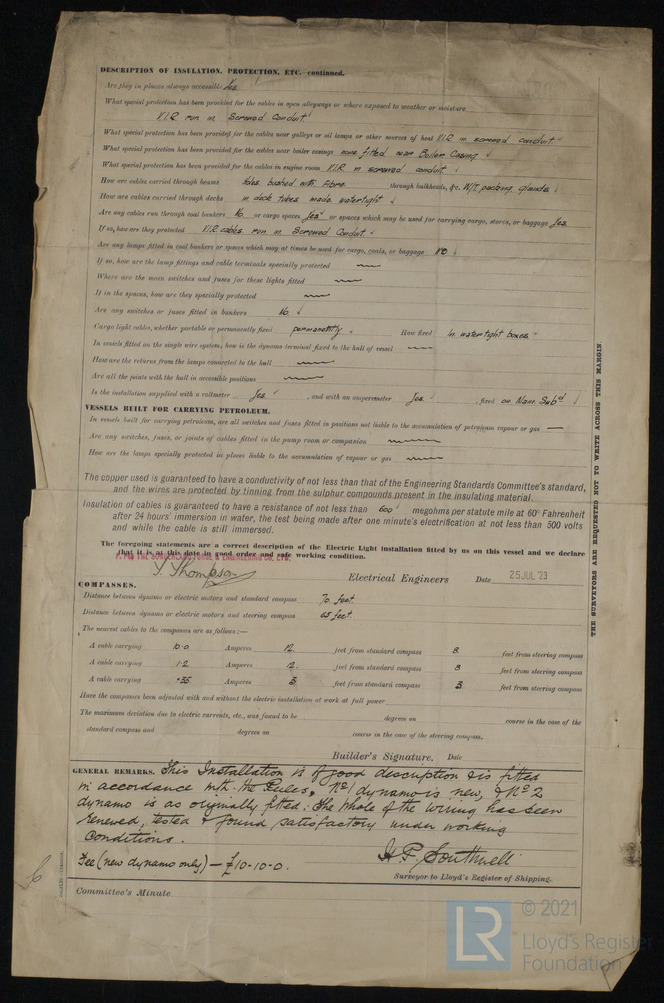 DESCRIPTION OF INSULATION, PROTECTION, ETC.—continued.
Are they in places always accessible Yes
What special protection has been provided for the cables in open alleyways or where exposed to weather or moisture
V.I.R. run in Screwed Conduit
What special protection has been provided for the cables near galleys or oil lamps or other sources of heat V.I.R in screwed conduit
What special protection has been provided for the cables near boiler casings none fitted near Boiler Casing
What special protection has been provided for the cables in engine room V.I.R in screwed conduit.
How are cables carried through beams Holes bushed with Fibre through bulkheads, &c. W/T. packing glands
How are cables carried through decks in deck tubes made watertight
Are any cables run through coal bunkers No or cargo spaces Yes or spaces which may be used for carrying cargo, stores, or baggage Yes
If so, how are they protected V.I.R cables run in Screwed Conduit
Are any lamps fitted in coal bunkers or spaces which may at times be used for cargo, coals, or baggage No
If so, how are the lamp fittings and cable terminals specially protected
Where are the main switches and fuses for these lights fitted
If in the spaces, how are they specially protected
Are any switches or fuses fitted in bunkers No.
Cargo light cables, whether portable or permanently fixed permanently How fixed In watertight boxes
In vessels fitted on the single wire system, how is the dynamo terminal fixed to the hull of vessel
How are the returns from the lamps connected to the hull
Are all the joints with the hull in accessible positions
Is the installation supplied with a voltmeter Yes. , and with an amperemeter Yes. , fixed on Main Sw bd
VESSELS BUILT FOR CARRYING PETROLEUM.
In vessels built for carrying petroleum, are all switches and fuses fitted in positions not liable to the accumulation of petroleum vapour or gas
Are any switches, fuses, or joints of cables fitted in the pump room or companion
How are the lamps specially protected in places liable to the accumulation of vapour or gas
The copper used is guaranteed to have a conductivity of not less than that of the Engineering Standards Committee's standard,
and the wires are protected by tinning from the sulphur compounds present in the insulating material.
Insulation of cables is guaranteed to have a resistance of not less than 600 megohms per statute mile at 60° Fahrenheit
after 24 hours' immersion in water, the test being made after one minute's electrification at not less than 500 volts
and while the cable is still immersed.
The foregoing statements are a correct description of the Electric Light installation fitted by us on this vessel and we declare
that it is at this date in good order and safe working condition.
P. PRO THE SUNDERLAND FORGE & ENGINEERING CO. LTD.
Thompson Electrical Engineers Date 25 JUL '23
COMPASSES.
Distance between dynamo or electric motors and standard compass 70 feet
Distance between dynamo or electric motors and steering compass 65 feet.
The nearest cables to the compasses are as follows:—
A cable carrying 10.0 Amperes 12. feet from standard compass 8. feet from steering compass
A cable carrying 1.2 Amperes 12. feet from standard compass 8 feet from steering compass
A cable carrying .35 Amperes 3 feet from standard compass 3. feet from steering compass
Have the compasses been adjusted with and without the electric installation at work at full power
The maximum deviation due to electric currents, etc., was found to be degrees on course in the case of the
standard compass and degrees on course in the case of the steering compass.
Builder's Signature. Date
GENERAL REMARKS. This Installation is of good description & is fitted
in accordance with the Rules, No 1 dynamo is new, & No 2
dynamo is as originally fitted: the whole of the wiring has been
renewed, tested & found satisfactory under working
conditions.
Fee (new dynamo only) — £10-10-0.
H. F. Southwell
Surveyor to Lloyd's Register of Shipping.
Committee's Minute
THE SURVEYORS ARE REQUESTED NOT TO WRITE ACROSS THIS MARGIN
LR
© 2021
Lloyd's Register
Foundation